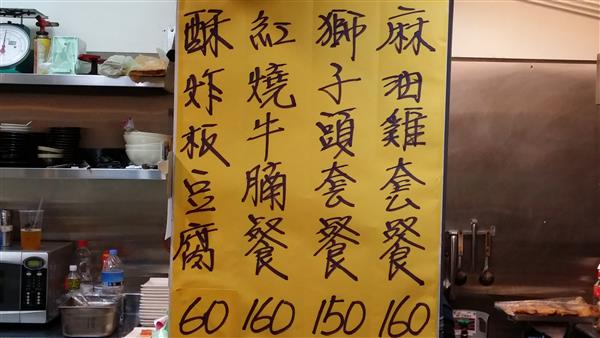 麻油雞套餐160
獅子頭套餐150
紅燒牛腩餐160
酥炸板豆腐60